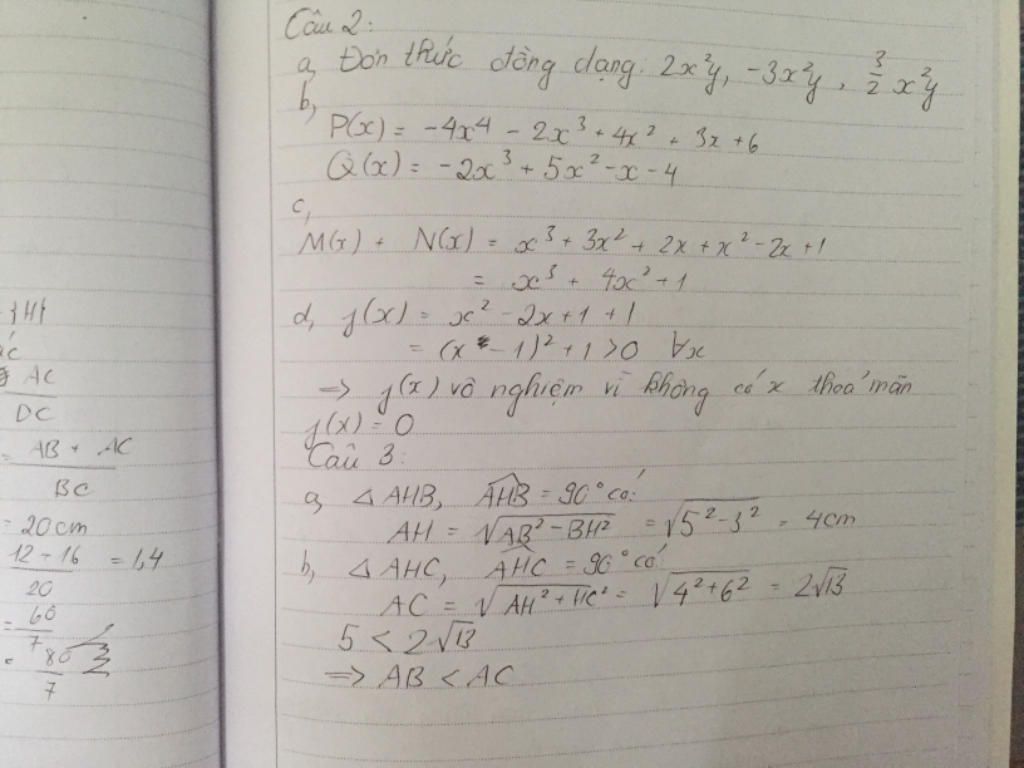 - {H}
AC
DC
= AB + AC
BC
= 20cm
12 + 16 = 1,4
20
= 60
7
= 80
7
Câu 2:
a, Đơn thức đồng dạng: 2x²y, -3x²y, 3/2 x²y
b,
P(x) = -4x⁴ - 2x³ + 4x² + 3x + 6
Q(x) = -2x³ + 5x² - x - 4
c,
M(x) + N(x) = x³ + 3x² + 2x + x² - 2x + 1
= x³ + 4x² + 1
d, f(x) = x² - 2x + 1 + 1
= (x - 1)² + 1 > 0 ∀x
=> f(x) vô nghiệm vì không có x thoả mãn
f(x) = 0
Câu 3:
a, △AHB, \widehat{AHB} = 90° có:
AH = √(AB² - BH²) = √(5² - 3²) = 4cm
b, △AHC, \widehat{AHC} = 90° có:
AC = √(AH² + HC²) = √(4² + 6²) = 2√13
5 < 2√13
=> AB < AC